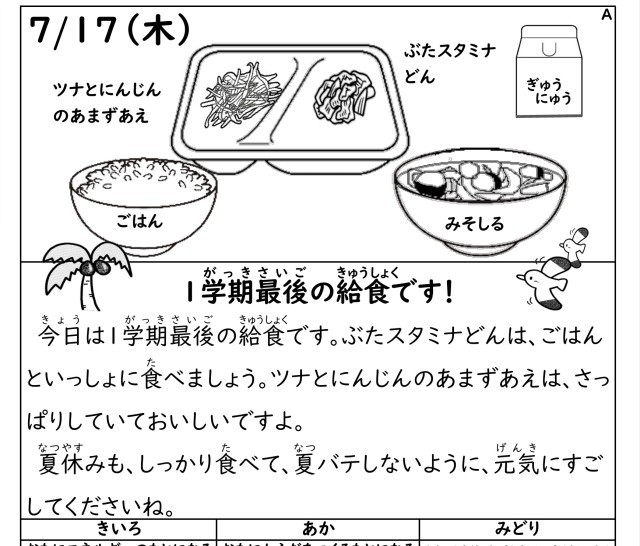 A
7/17(木)
ぶたスタミナ
どん
ツナとにんじん
のあまずあえ
ぎゅう
にゅう
ごはん
みそしる
がっきさいご きゅうしょく
1学期最後の給食です!
きょう がっきさいご きゅうしょく
今日は1学期最後の給食です。ぶたスタミナどんは、ごはん
た
といっしょに食べましょう。ツナとにんじんのあまずあえは、さっ
ぱりしていておいしいですよ。
なつやす た なつ げんき
夏休みも、しっかり食べて、夏バテしないように、元気にすご
してくださいね。
きいろ あか みどり